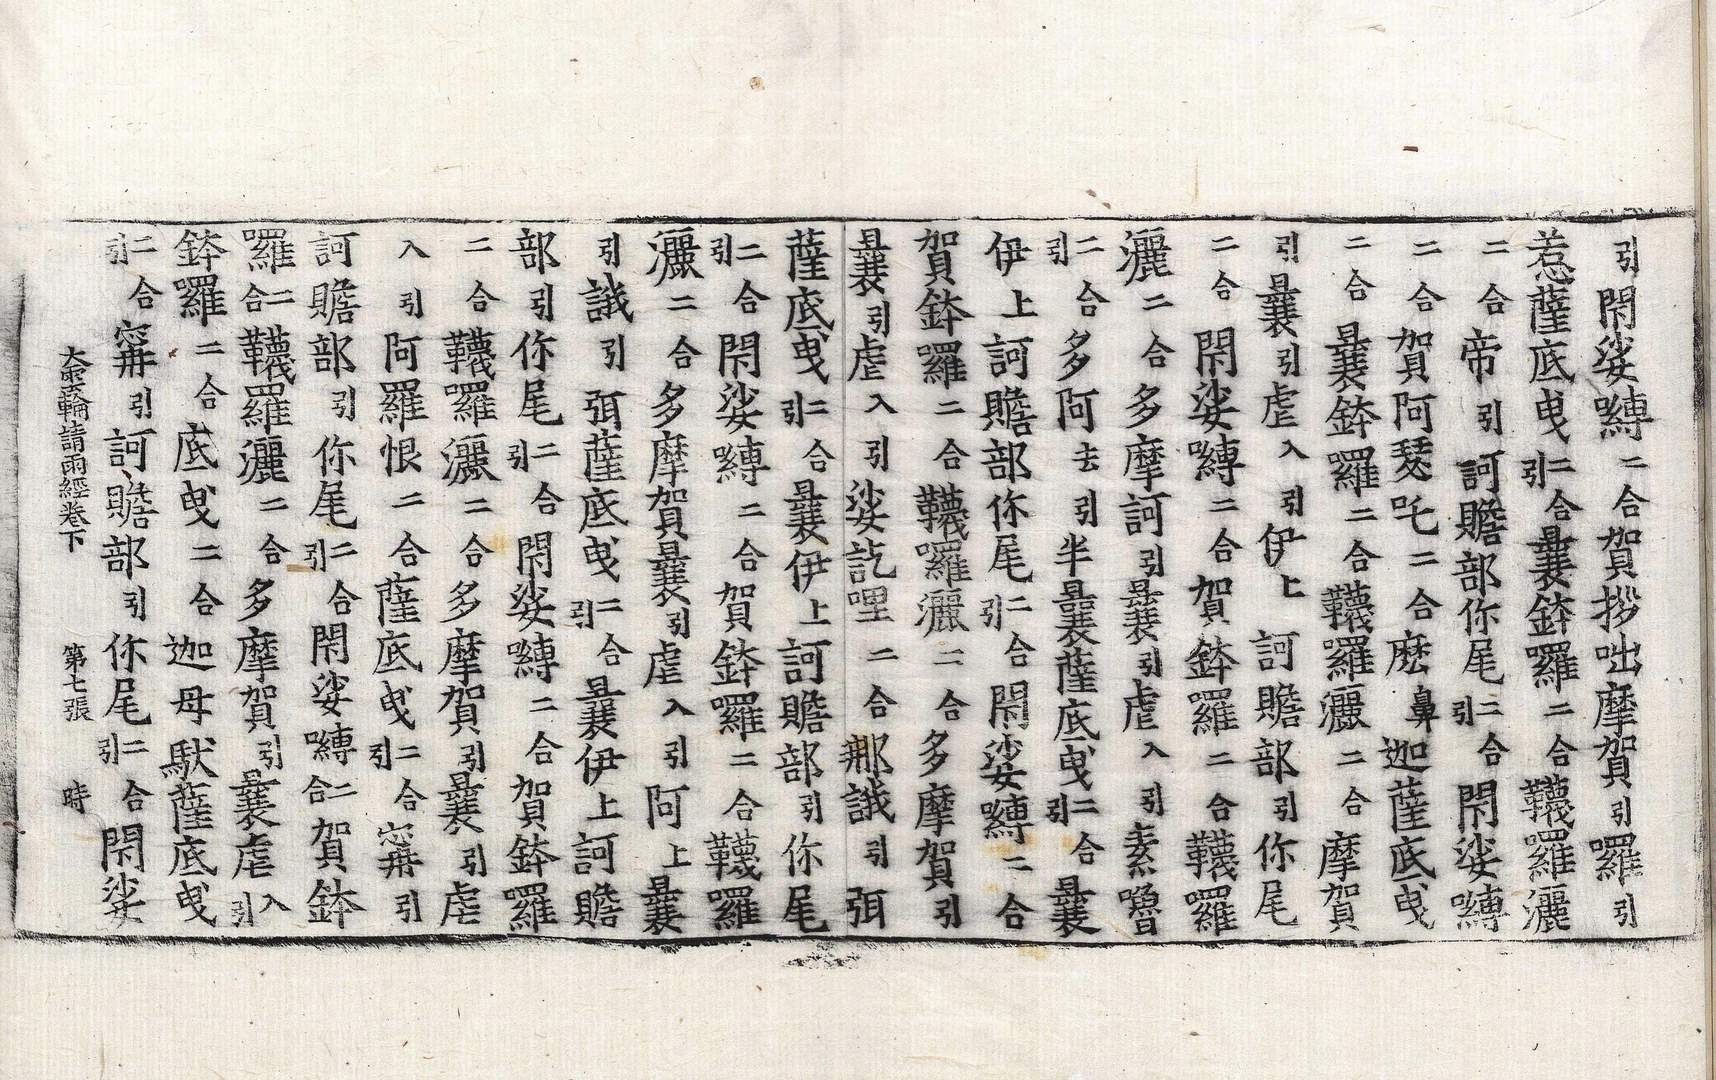 引閑娑嚩二合賀拶咄摩賀引囉引
惹薩底曳二合引曩鉢囉二合韈囉灑
二合帝引訶贍部你尾二合引閑娑嚩
二合賀阿瑟吒二合麽鼻迦薩底曳
二合曩鉢囉二合韈囉灑二合摩賀
引曩引虐入引伊上訶贍部引你尾
二合閑娑嚩二合賀鉢囉二合韈囉
灑二合多摩訶引曩引虐入引素嚕
二合引多阿去引半曩薩底曳二合引曩
伊上訶贍部你尾二合引閑娑嚩二合
賀鉢囉二合韈囉灑二合多摩賀引
曩引虐入引娑訖哩二合那誐引弭
薩底曳二合引曩伊上訶贍部引你尾
二合引閑娑嚩二合賀鉢囉二合韈囉
灑二合多摩賀曩引虐入引阿上曩
引誐引弭薩底曳二合引曩伊上訶贍
部引你尾二合引閑娑嚩二合賀鉢囉
二合韈囉灑二合多摩賀引曩引虐
入引阿羅恨二合薩底曳二合引甯引
訶贍部引你尾二合引閑娑嚩二合賀鉢
囉二合韈囉灑二合多摩賀引曩虐入引
鉢囉二合底曳二合迦母馱薩底曳
二合引甯引訶贍部引你尾二合引閑娑
大雲輪請雨經卷下 第七張 時